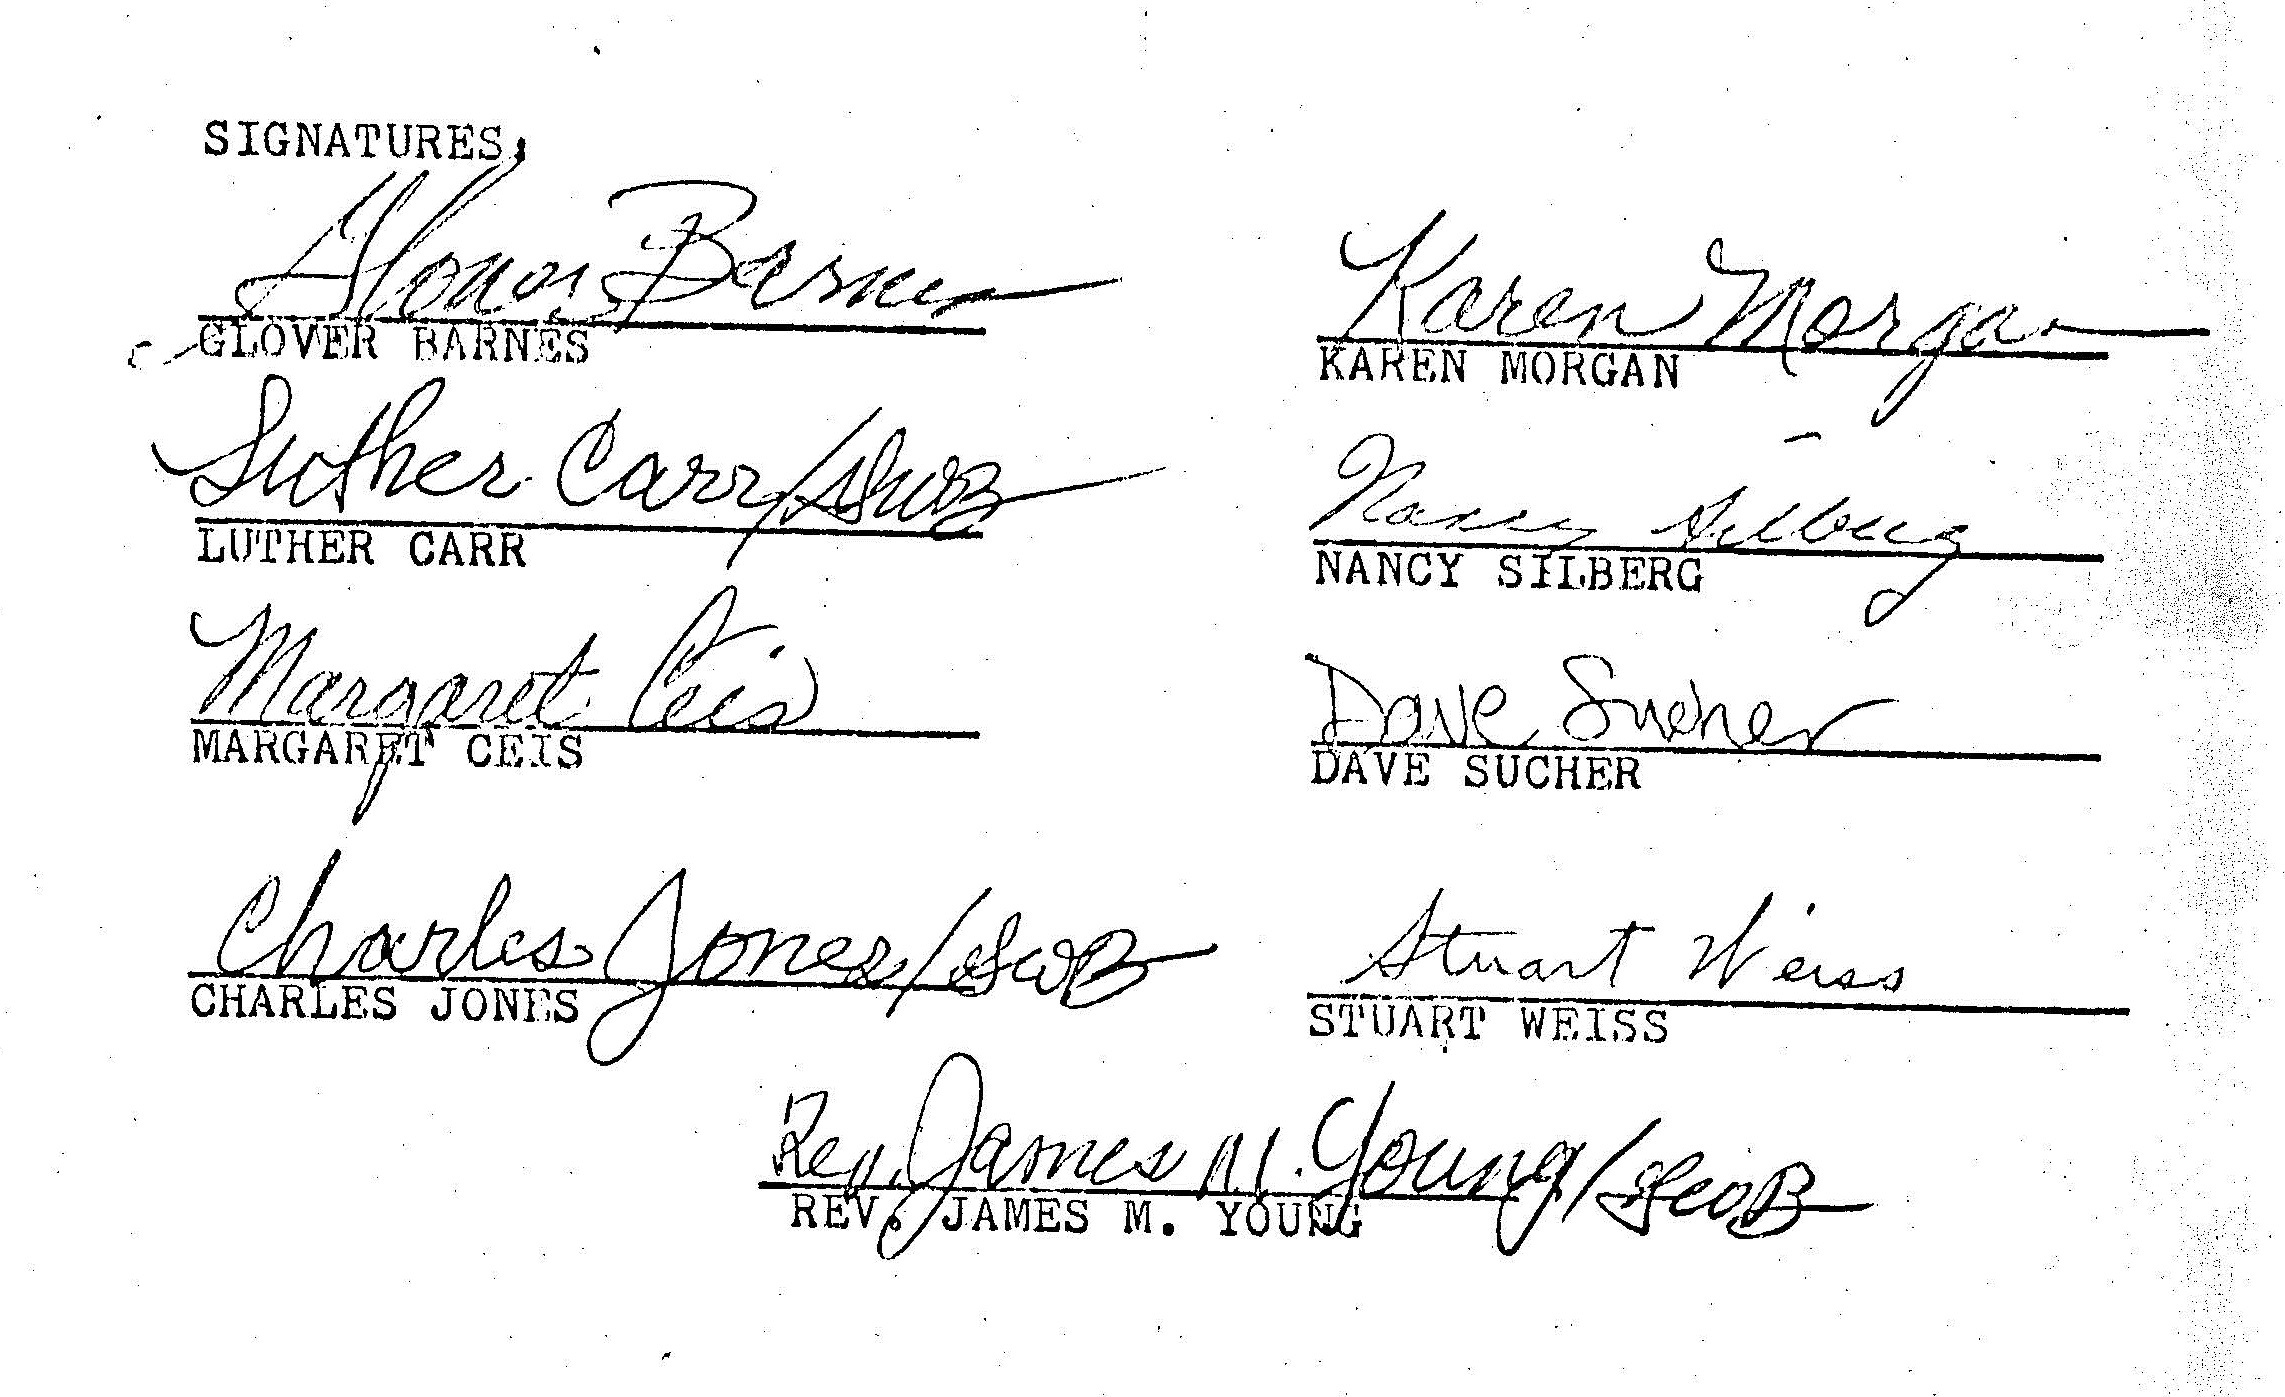 SIGNATURES
Glover Barnes
GLOVER BARNES
Luther Carr/GWB
LUTHER CARR
Margaret Ceis
MARGARET CEIS
Charles Jones/GWB
CHARLES JONES
Karen Morgan
KAREN MORGAN
Nancy Silberg
NANCY SILBERG
Dave Sucher
DAVE SUCHER
Stuart Weiss
STUART WEISS
Rev. James M. Young/GWB
REV. JAMES M. YOUNG